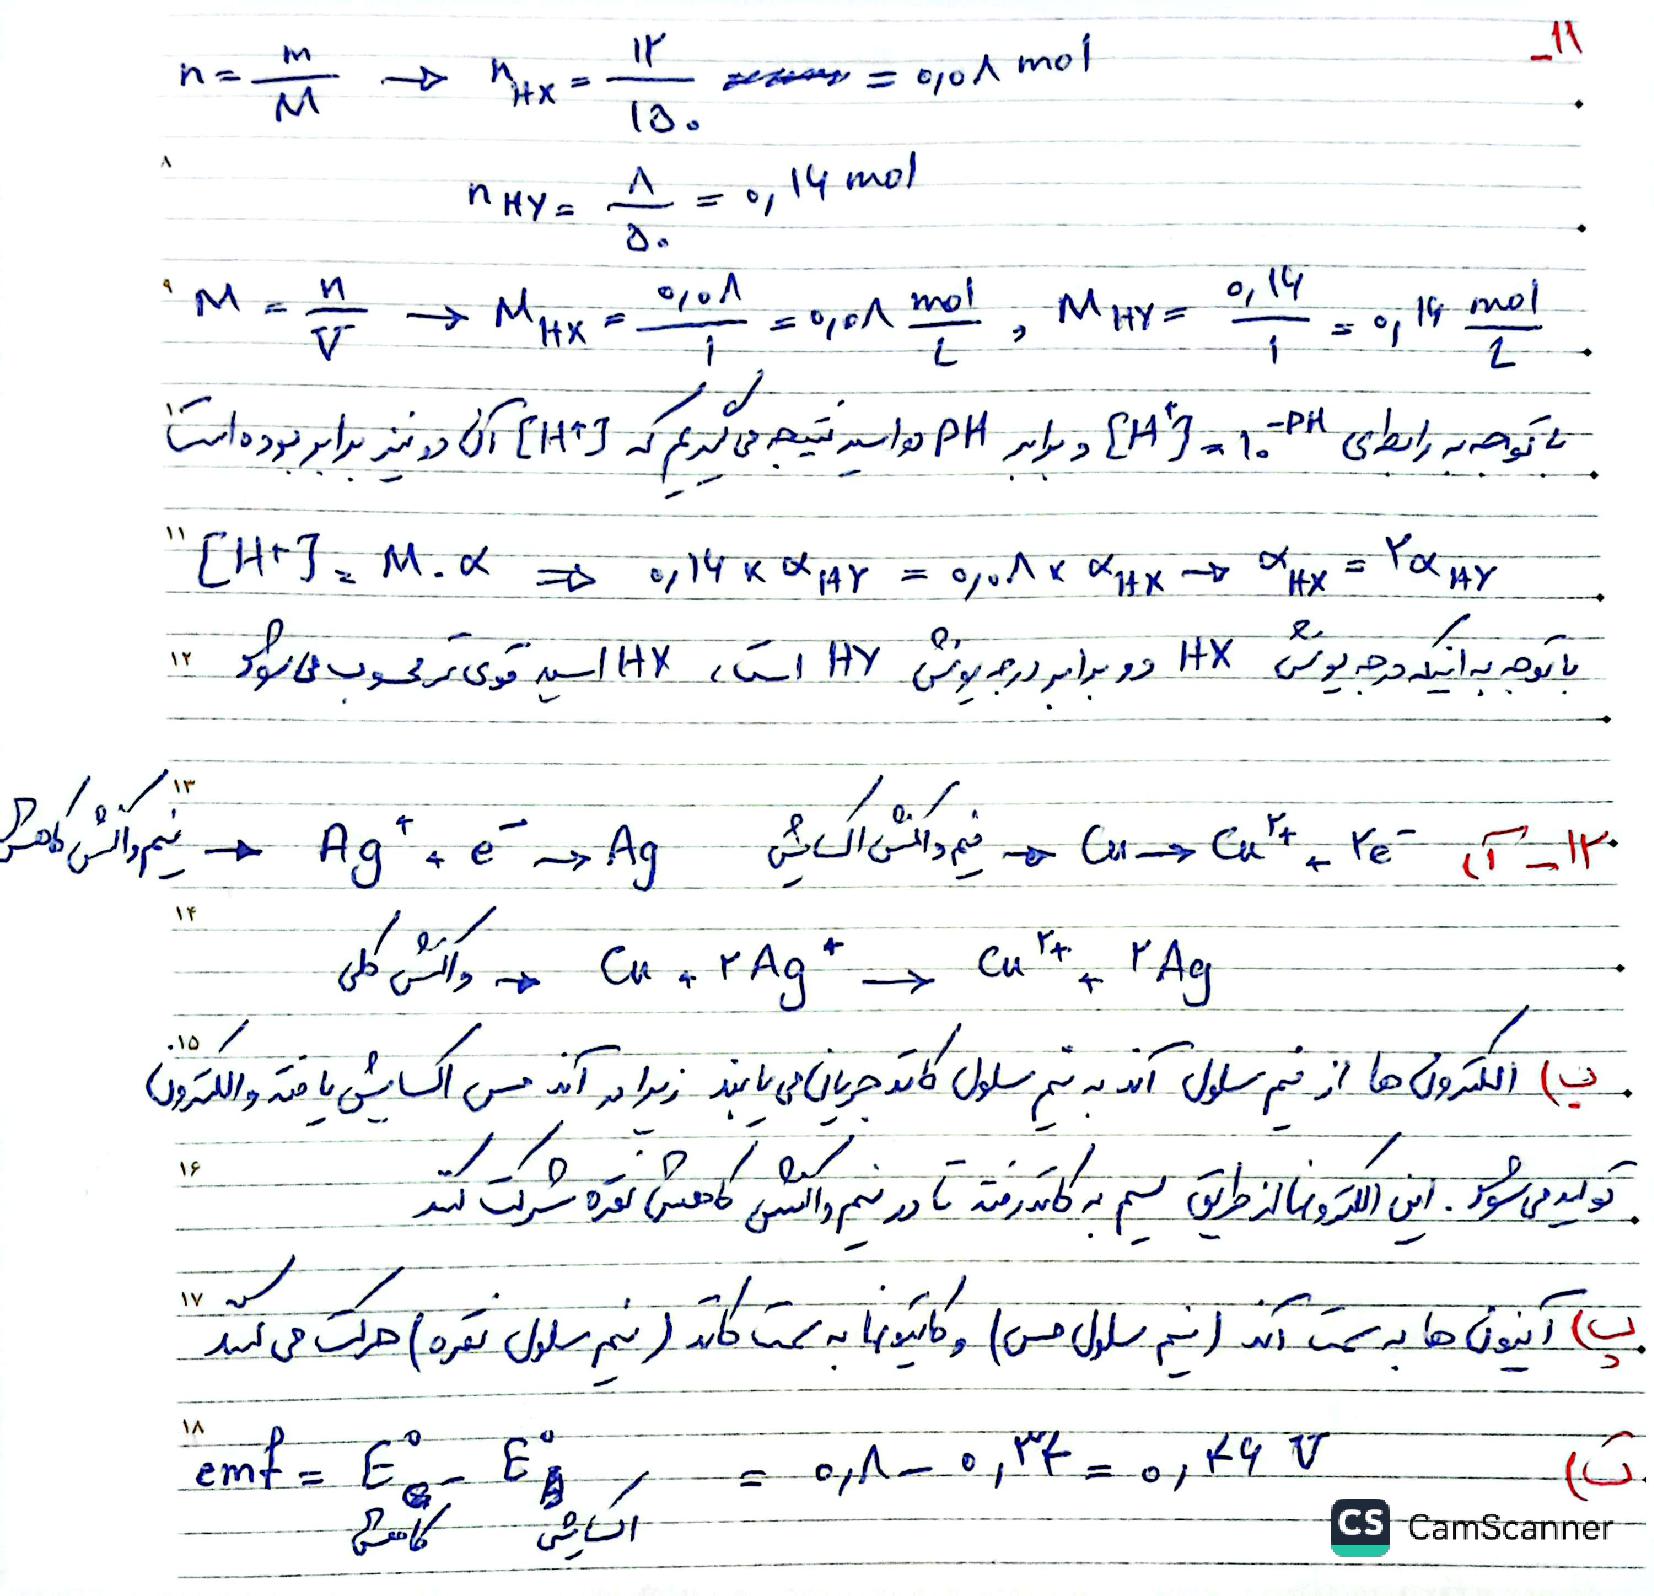 ۱۱-
n = m/M → n HX = ۱۲/۱۵۰ = ۰,۰۸ mol
۸
n HY = ۸/۵۰ = ۰,۱۶ mol
۹ M = n/V → M HX = ۰,۰۸/۱ = ۰,۰۸ mol/L , M HY = ۰,۱۶/۱ = ۰,۱۶ mol/L
۱۰ با توجه به رابطه‌ی [H⁺] = ۱۰^-PH و برابر PH دو اسید نتیجه می‌گیریم که [H⁺] آن دو نیز برابر بوده است
۱۱ [H⁺] = M.α ⇒ ۰,۱۶ × α HY = ۰,۰۸ × α HX → α HX = ۲α HY
۱۲ با توجه به اینکه درجه یونش HX دو برابر درجه یونش HY است، HX اسید قوی تر محسوب می شود
۱۳
۱۲- آ) Cu → Cu²⁺ + ۲e⁻ ← نیم واکنش اکسایش Ag⁺ + e⁻ → Ag ← نیم واکنش کاهش
۱۴
واکنش کلی → Cu + ۲Ag⁺ → Cu²⁺ + ۲Ag
۱۵
ب) الکترون ها از نیم سلول آند به نیم سلول کاتد جریان می یابند زیرا در آند مس اکسایش یافته و الکترون
۱۶
تولید می شود. این الکترونها از طریق سیم به کاتد رفته تا در نیم واکنش کاهش نقره شرکت کنند
۱۷
پ) آنیون ها به سمت آند (نیم سلول مس) و کاتیونها به سمت کاتد (نیم سلول نقره) حرکت می کنند
۱۸
ت) emf = E° کاهش - E° اکسایش = ۰,۸ - ۰,۳۴ = ۰,۴۶ V
CS CamScanner